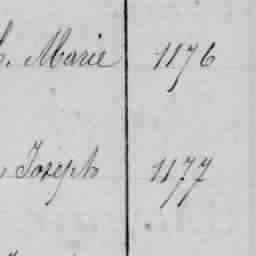 Marie 1176
Joseph 1177